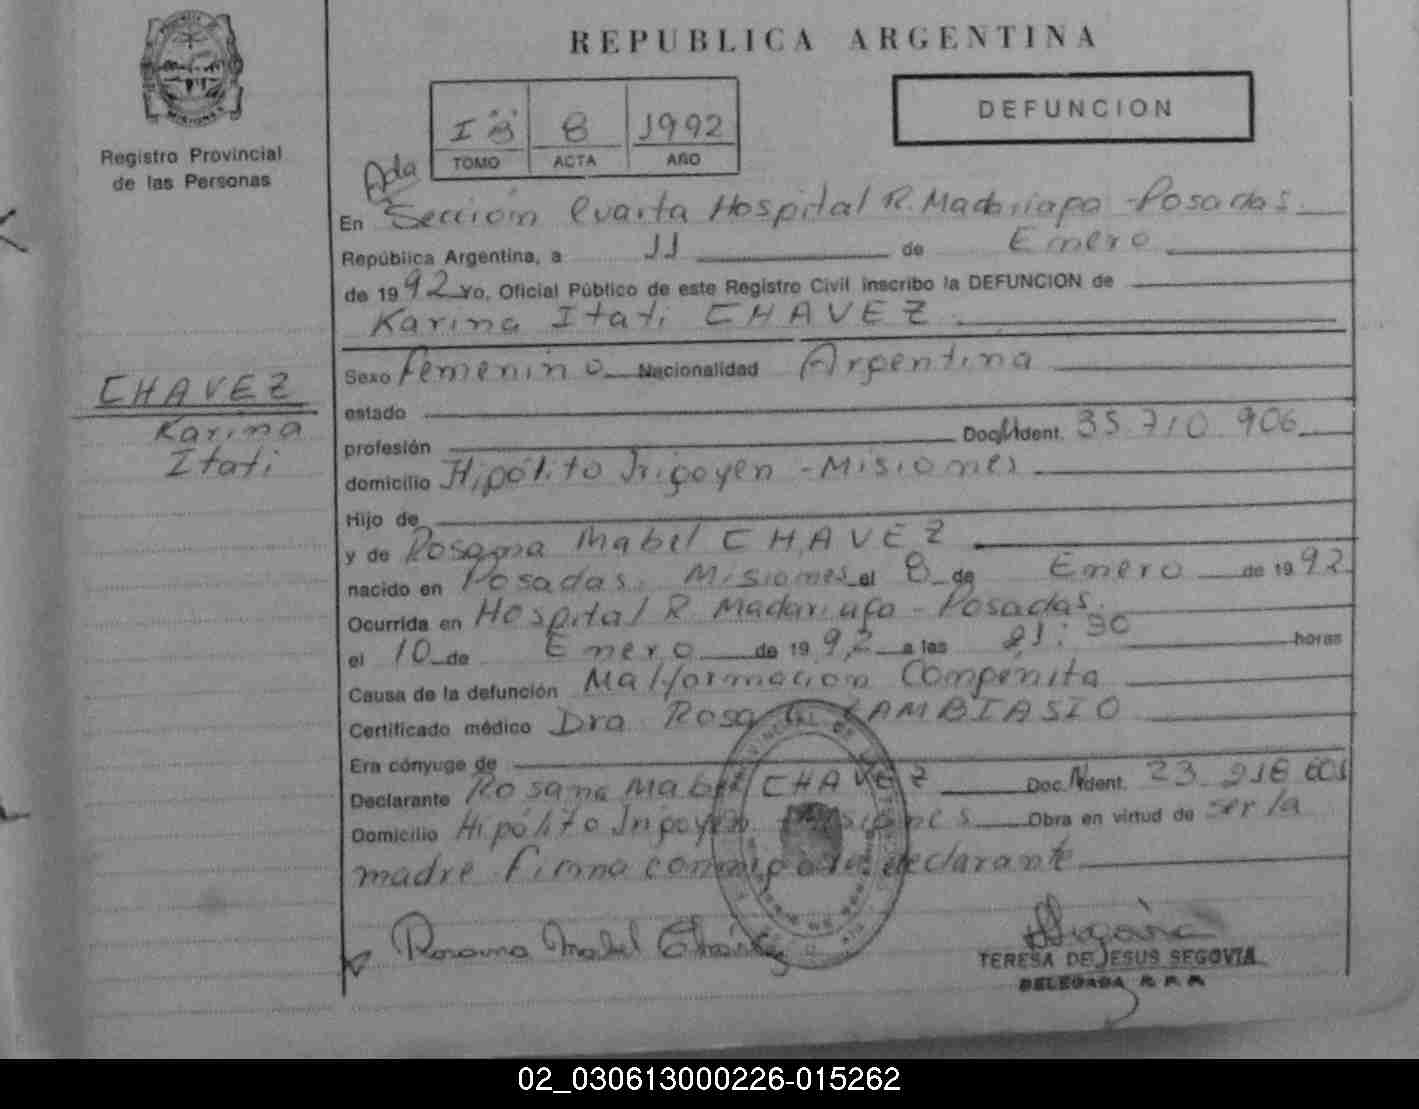 REPUBLICA ARGENTINA
DEFUNCION
8 1992
TOMO ACTA AÑO
Registro Provincial
de las Personas
En Sección Cuarta Hospital R. Madariaga - Posadas
República Argentina, a 11 de Enero
de 1992 Yo, Oficial Público de este Registro Civil inscribo la DEFUNCION de
Karina Itati CHAVEZ
CHAVEZ
Karina
Itati
Sexo Femenino Nacionalidad Argentina
estado
profesión Doc. Ident. 35 710 906
domicilio Hipólito Irigoyen - Misiones
Hijo de
y de Rosana Mabel CHAVEZ
nacido en Posadas. Misiones el 8 de Enero de 1992
Ocurrida en Hospital R. Madariaga - Posadas.
el 10 de Enero de 1992 a las 21:30 horas
Causa de la defunción Malformación Congénita
Certificado médico Dra. Rosa LAMBIASIO
Era cónyuge de
Declarante Rosana Mabel CHAVEZ Doc. Ident. 23
Domicilio Hipólito Irigoyen Misiones Obra en virtud de ser la
madre firma declarante
Rosana Mabel Chavez
TERESA DE JESUS SEGOVIA
DELEGADA R.P.P.
02_030613000226-015262